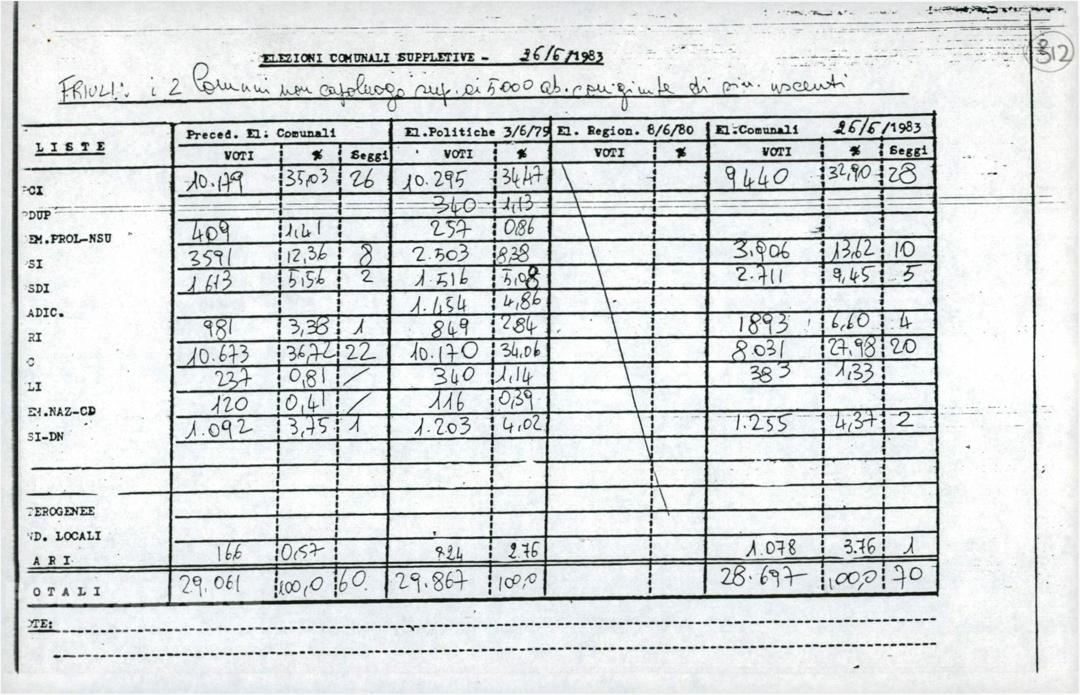 ELEZIONI COMUNALI SUPPLETIVE - 26/6/1983
312
FRIULI: i 2 Comuni non capoluogo sup. ai 5000 ab. con giunte di sin. uscenti
LISTE Preced. El. Comunali El.Politiche 3/6/79 El. Region. 8/6/80 El.Comunali 26/6/1983
VOTI % Seggi VOTI % VOTI % VOTI % Seggi
PCI 10.179 35,03 26 10.295 34,47 9440 32,90 28
PDUP 340 1,13
EM.PROL-NSU 409 1,41 257 0,86
SI 3591 12,36 8 2.503 8,38 3.906 13,62 10
SDI 1.613 5,56 2 1.516 5,08 2.711 9,45 5
ADIC. 1.454 4,86
RI 981 3,38 1 849 2,84 1893 6,60 4
C 10.673 36,72 22 10.170 34,06 8.031 27,98 20
LI 237 0,81 / 340 1,14 383 1,33
EM.NAZ-CD 120 0,41 / 116 0,39
SI-DN 1.092 3,75 1 1.203 4,02 1.255 4,37 2
TEROGENEE
ND. LOCALI
ARI 166 0,57 824 2.76 1.078 3.76 1
OTALI 29.061 100,0 60. 29.867 100,0 28.697 100,0 70
OTE: